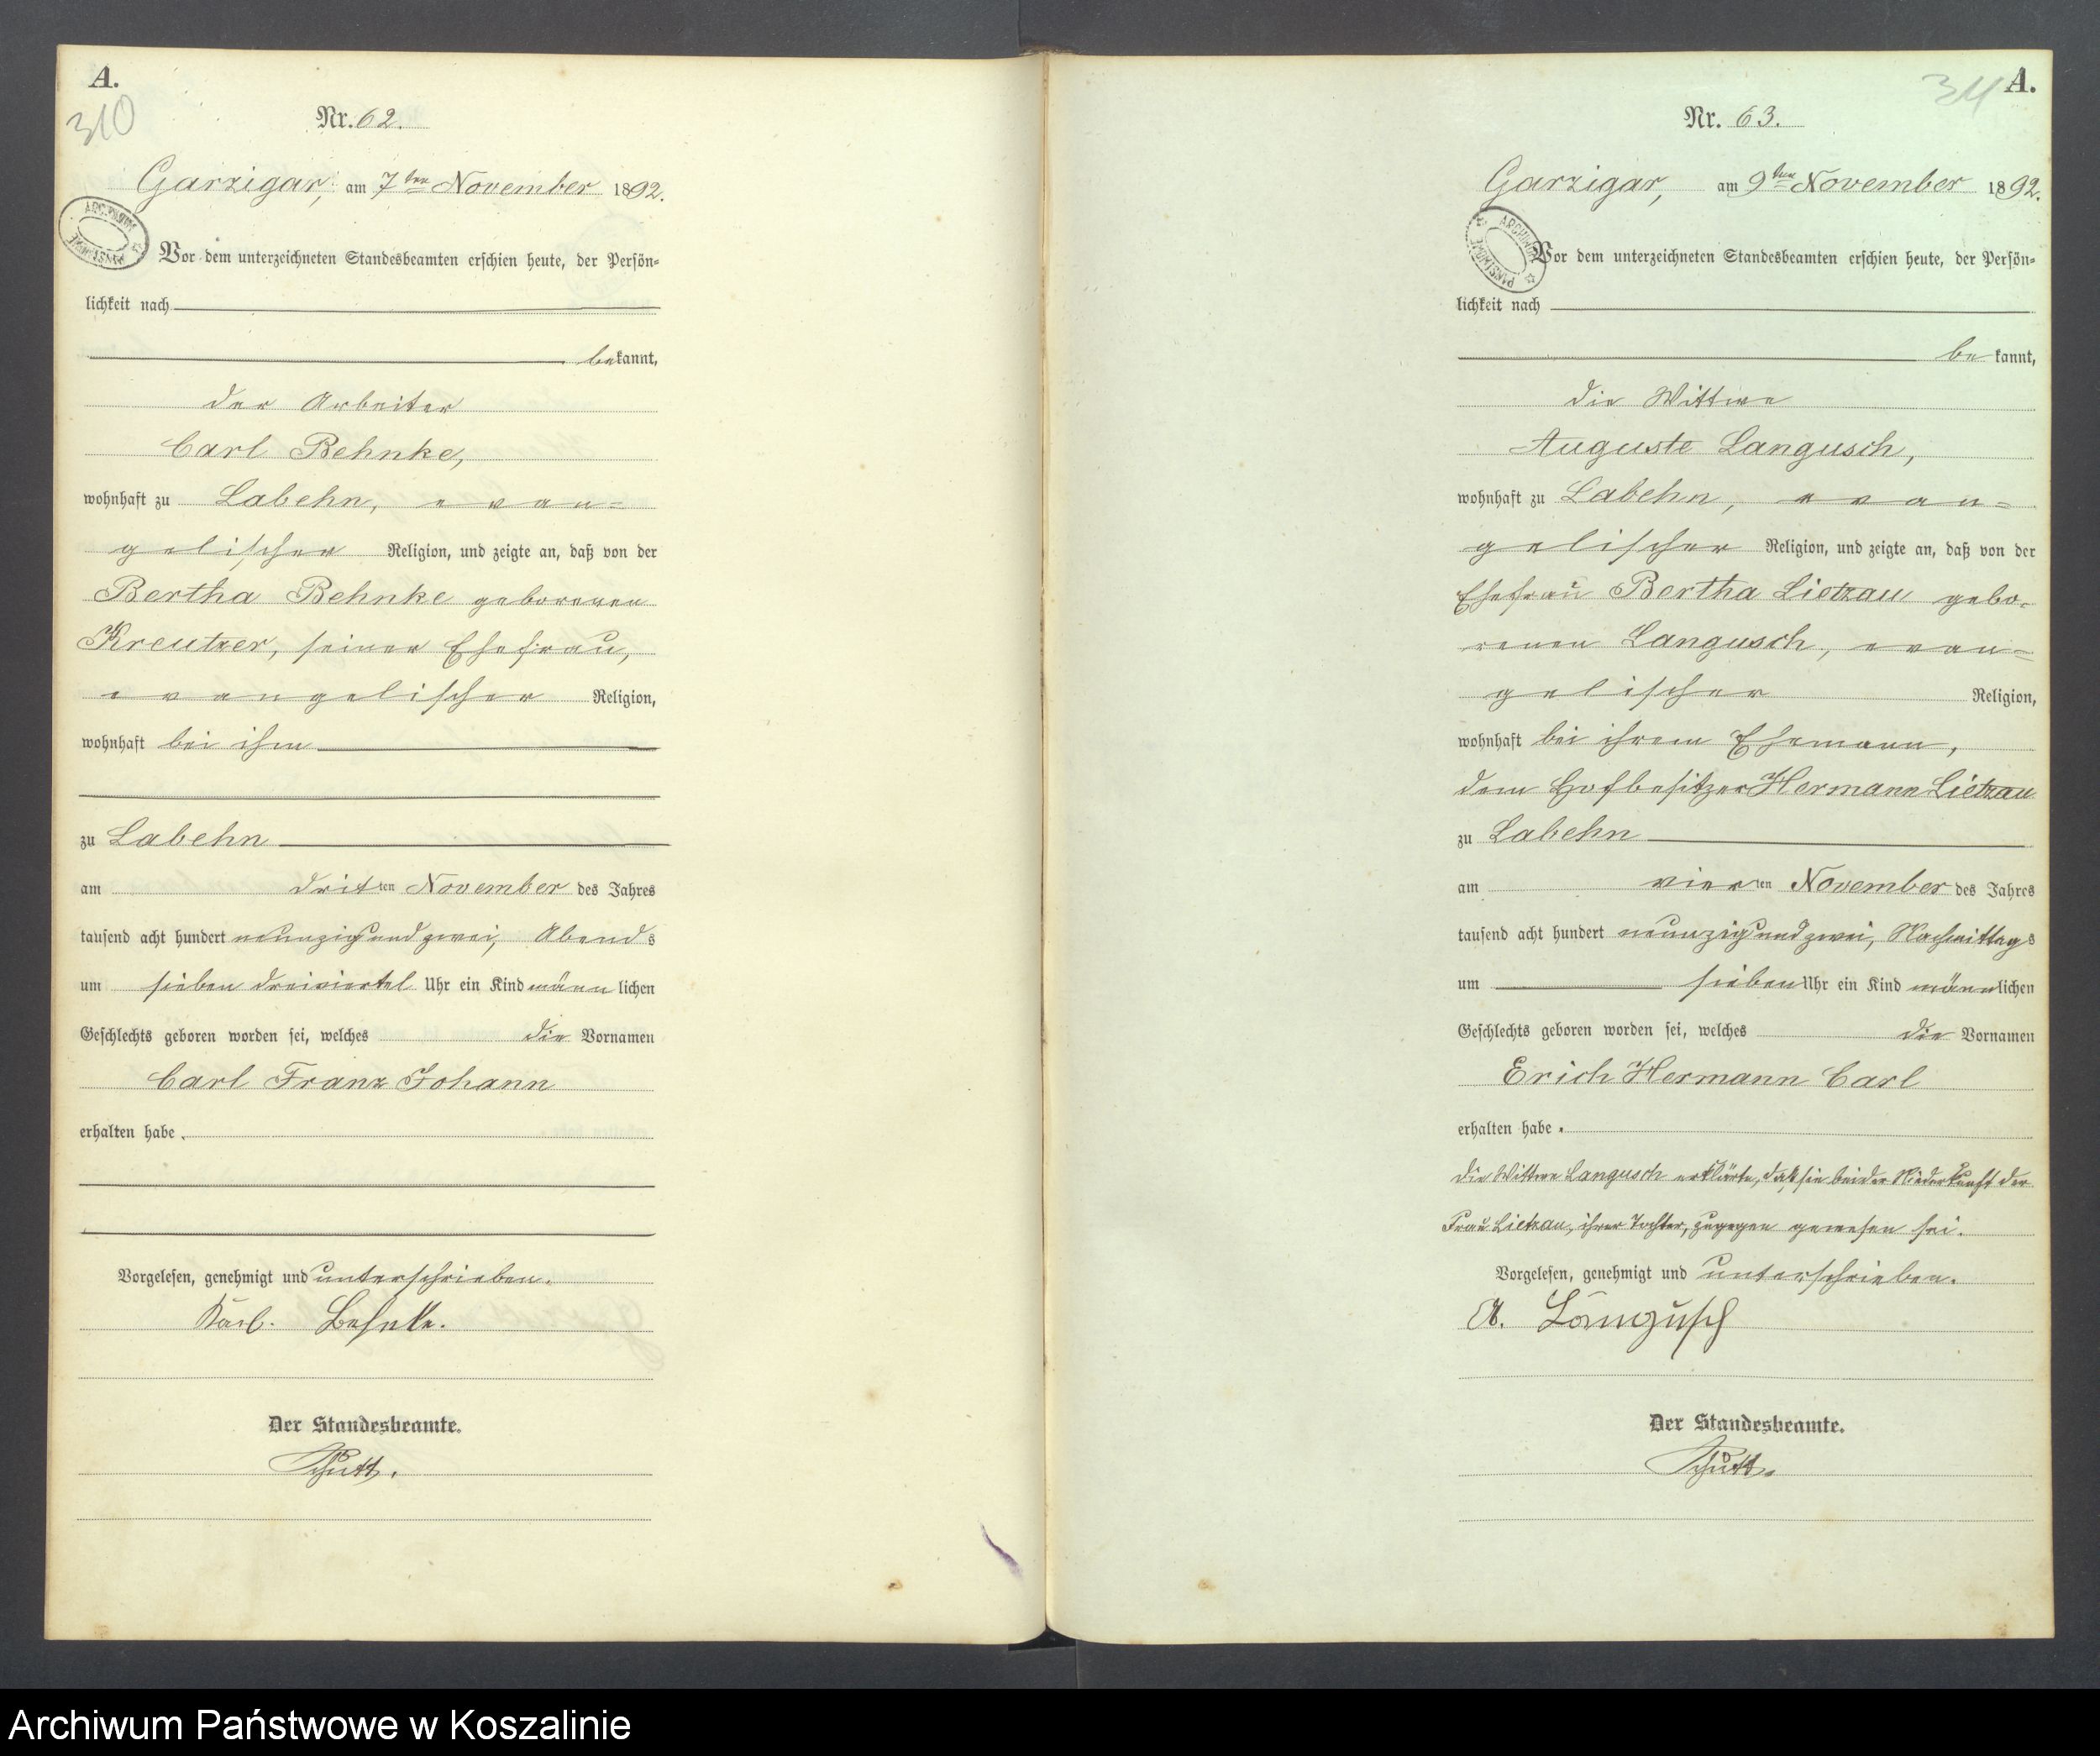 A.
310
Nr. 62.
Garzigar, am 7ten November 1892.
ARCHIWUM PAŃSTWOWE
Vor dem unterzeichneten Standesbeamten erschien heute, der Persön-
lichkeit nach
bekannt,
der Arbeiter
Carl Behnke,
wohnhaft zu Labehn, evan-
gelischer Religion, und zeigte an, daß von der
Bertha Behnke geborenen
Kreutzer, seiner Ehefrau,
evangelischer Religion,
wohnhaft bei ihm
zu Labehn
am dritten November des Jahres
tausend acht hundert neunzig und zwei, Abends
um sieben dreiviertel Uhr ein Kind männlichen
Geschlechts geboren worden sei, welches die Vornamen
Carl Franz Johann
erhalten habe.
Vorgelesen, genehmigt und unterschrieben.
Karl. Behnke.
Der Standesbeamte.
A.
Nr. 63.
Garzigar, am 9ten November 1892.
ARCHIWUM PAŃSTWOWE
Vor dem unterzeichneten Standesbeamten erschien heute, der Persön-
lichkeit nach
bekannt,
die Wittwe
Auguste Langusch,
wohnhaft zu Labehn, evan-
gelischer Religion, und zeigte an, daß von der
Ehefrau Bertha Lietzau gebo-
renen Langusch, evan-
gelischer Religion,
wohnhaft bei ihrem Ehemann,
dem Hofbesitzer Hermann Lietzau
zu Labehn
am vierten November des Jahres
tausend acht hundert neunzig und zwei, Nachmittags
um sieben Uhr ein Kind männlichen
Geschlechts geboren worden sei, welches die Vornamen
Erich Hermann Carl
erhalten habe.
Die Wittwe Langusch erklärte, daß sie bei der Niederkunft der
Frau Lietzau, ihrer Tochter, zugegen gewesen sei.
Vorgelesen, genehmigt und unterschrieben.
A. Langusch
Der Standesbeamte.
Archiwum Państwowe w Koszalinie